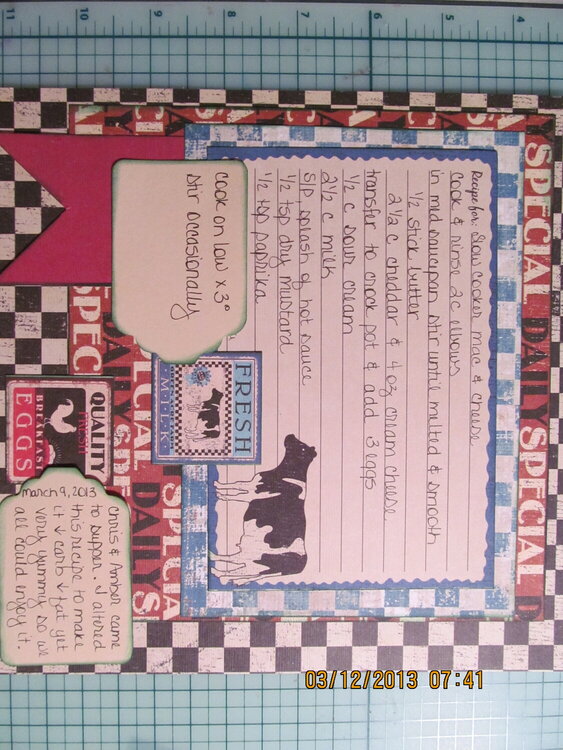 Recipe for: Slow cooker mac & cheese
Cook & rinse 2 c elbows
in mid saucepan stir until melted & smooth
1/2 stick butter
2 1/2 c cheddar & 4 oz cream cheese
transfer to crock pot & add 3 eggs
1/2 c sour cream
2 1/2 c milk
S/P, splash of hot sauce
1/2 tsp dry mustard
1/2 tsp paprika
cook on low x 3°
stir occasionally
FRESH
MILK
QUALITY
FRESH
BREAKFAST
EGGS
march 9, 2013
Chris & Amber came
to supper. I altered
this recipe to make
it ↓ carb ↓ fat yet
very yummy so we
all could injoy it.
SPECIAL DAILY SPECIAL D
DAILY SPE
SPEC
CIAL
DAILY S
SPECIA
10
9
8
7
6
5
4
03/12/2013 07:41